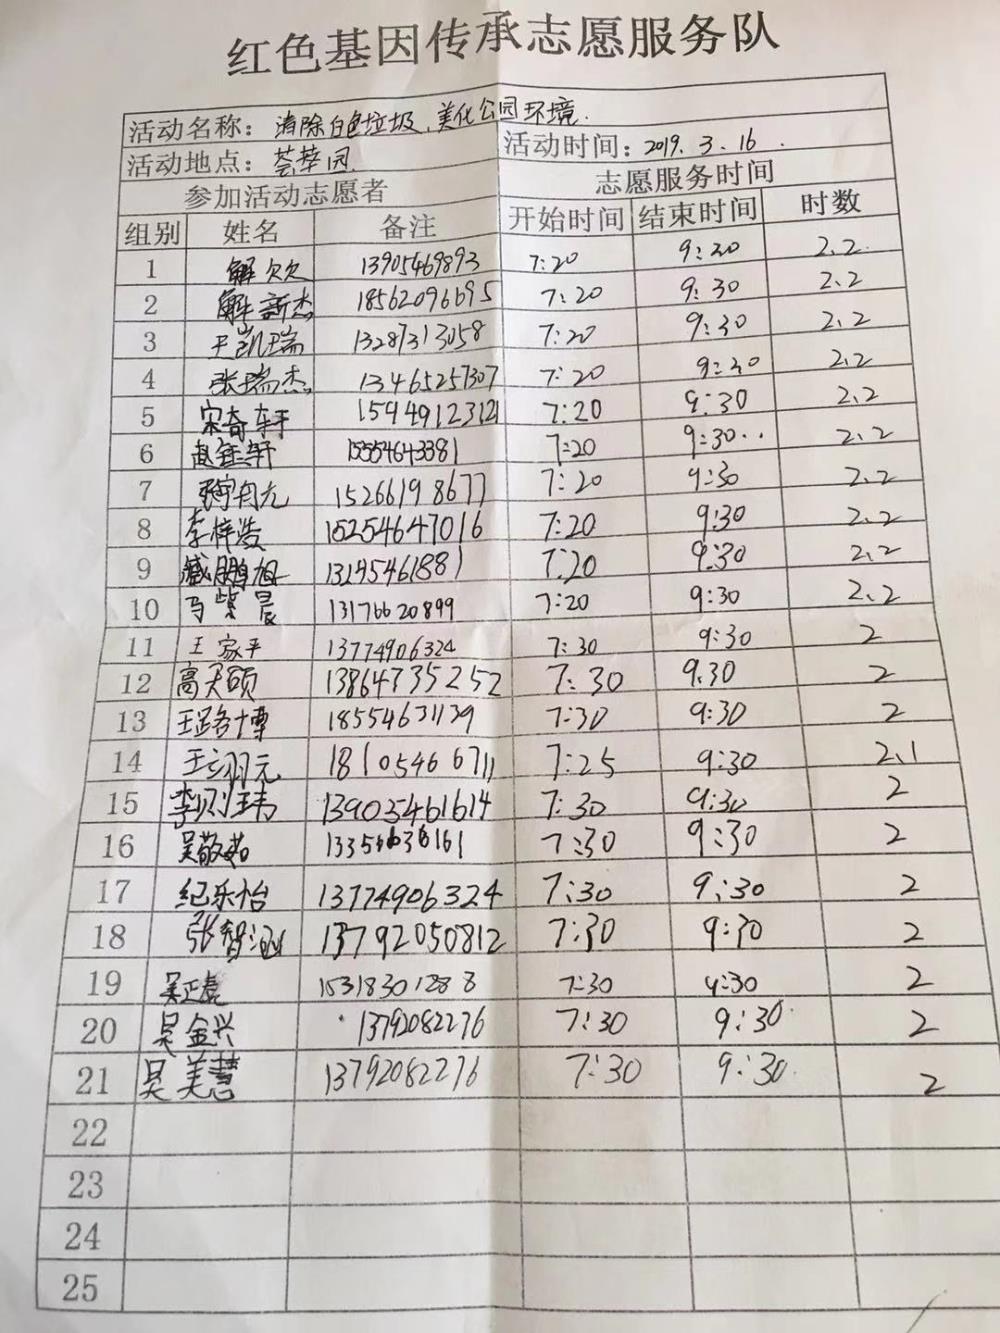 红色基因传承志愿服务队
活动名称：清除白色垃圾、美化公园环境.
活动地点：荟萃园 活动时间：2019.3.16.
参加活动志愿者 志愿服务时间
组别 姓名 备注 开始时间 结束时间 时数
1 解欠欠 13905469893 7:20 9:30 2.2
2 解新杰 18562096695 7:20 9:30 2.2
3 王凯瑞 13287313058 7:20 9:30 2.2
4 张瑞杰 13465257307 7:20 9:30 2.2
5 宋奇轩 15949123121 7:20 9:30 2.2
6 赵鑫轩 15554643381 7:20 9:30 2.2
7 15266198677 7:20 9:30 2.2
8 李梓浩 15254647016 7:20 9:30 2.2
9 臧鹏旭 13295461881 7:20 9:30 2.2
10 马紫晨 13176620899 7:20 9:30 2.2
11 王家平 13774906324 7:30 9:30 2
12 高天硕 13864735252 7:30 9:30 2
13 王路博 18554631139 7:30 9:30 2
14 王立羽元 18105466711 7:25 9:30 2.1
15 李则玮 13905461614 7:30 9:30 2
16 吴敬茹 13356636161 7:30 9:30 2
17 纪乐怡 13774906324 7:30 9:30 2
18 张智涵 13792050812 7:30 9:30 2
19 吴正虎 15318301288 7:30 9:30 2
20 吴金兴 13792082276 7:30 9:30 2
21 吴美慧 13792082276 7:30 9:30 2
22
23
24
25